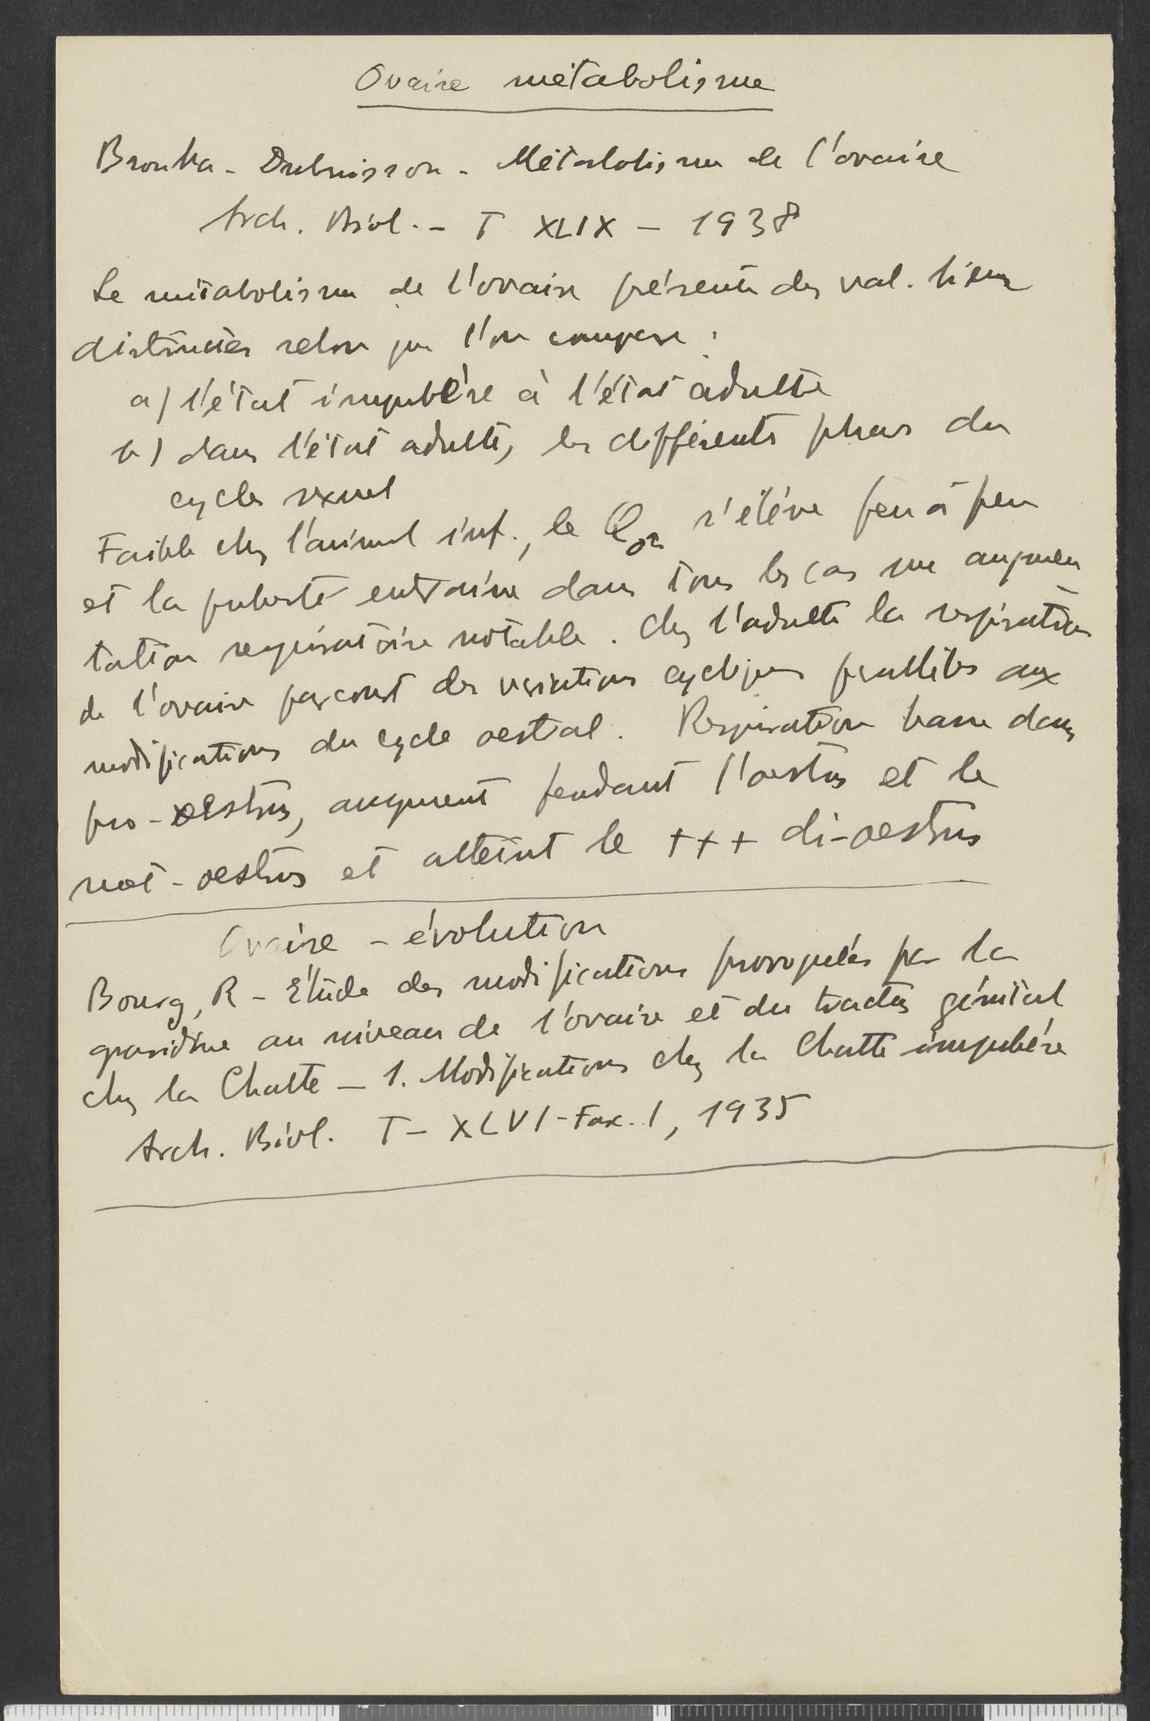 Ovaire métabolisme
Brouha - Dubuisson - Métabolisme de l'ovaire
Arch. Biol. - T XLIX - 1938
Le métabolisme de l'ovaire présente des val. bien
distinctes selon que l'on compare :
a) l'état impubère à l'état adulte
b) dans l'état adulte, les différents phases du
cycle sexuel
Faible chez l'animal inf., le QO2 s'élève peu à peu
et la puberté entraîne dans tous les cas une augmen
tation respiratoire notable. Chez l'adulte la respiration
de l'ovaire parcourt des variations cycliques parallèles aux
modifications du cycle oestral. Respiration basse dans
pro-oestrus, augment pendant l'oestrus et le
met-oestrus et atteint le +++ di-oestrus
Ovaire - évolution
Bourg, R - Etude des modifications provoquées par la
gravidine au niveau de l'ovaire et du tractus génital
chez la Chatte - 1. Modifications chez la Chatte impubère
Arch. Biol. T - XLVI - Fasc. 1, 1935